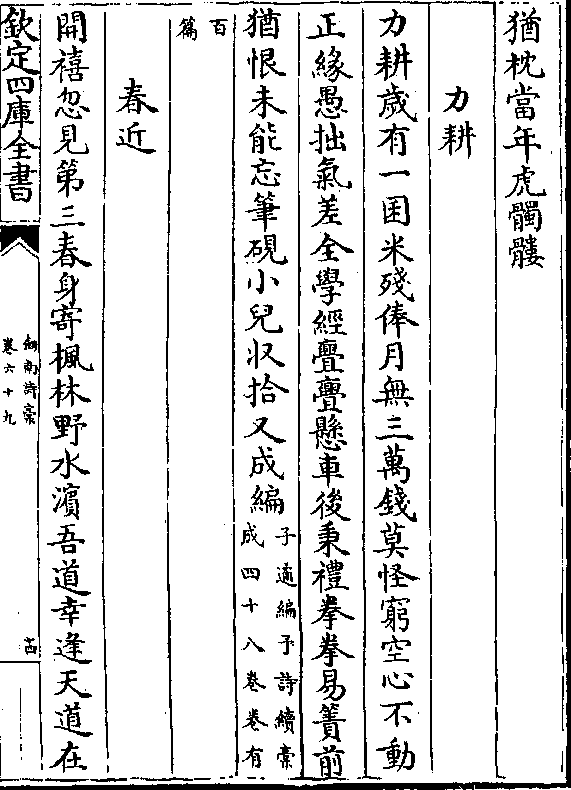 猶枕當年虎髑髏
力耕
力耕歳有一囷米殘俸月無三萬錢莫怪窮空心不動
正緣愚拙氣差全學經亹亹懸車後秉禮拳拳易簀前
猶恨未能忘筆硯小兒收拾又成編子遹編予詩續稾
成四十八卷卷有
百
篇
春近
開禧忽見第三春身寄楓林野水濵吾道幸逢天道在
欽定四庫全書
劒南詩稾
卷六十九
十四